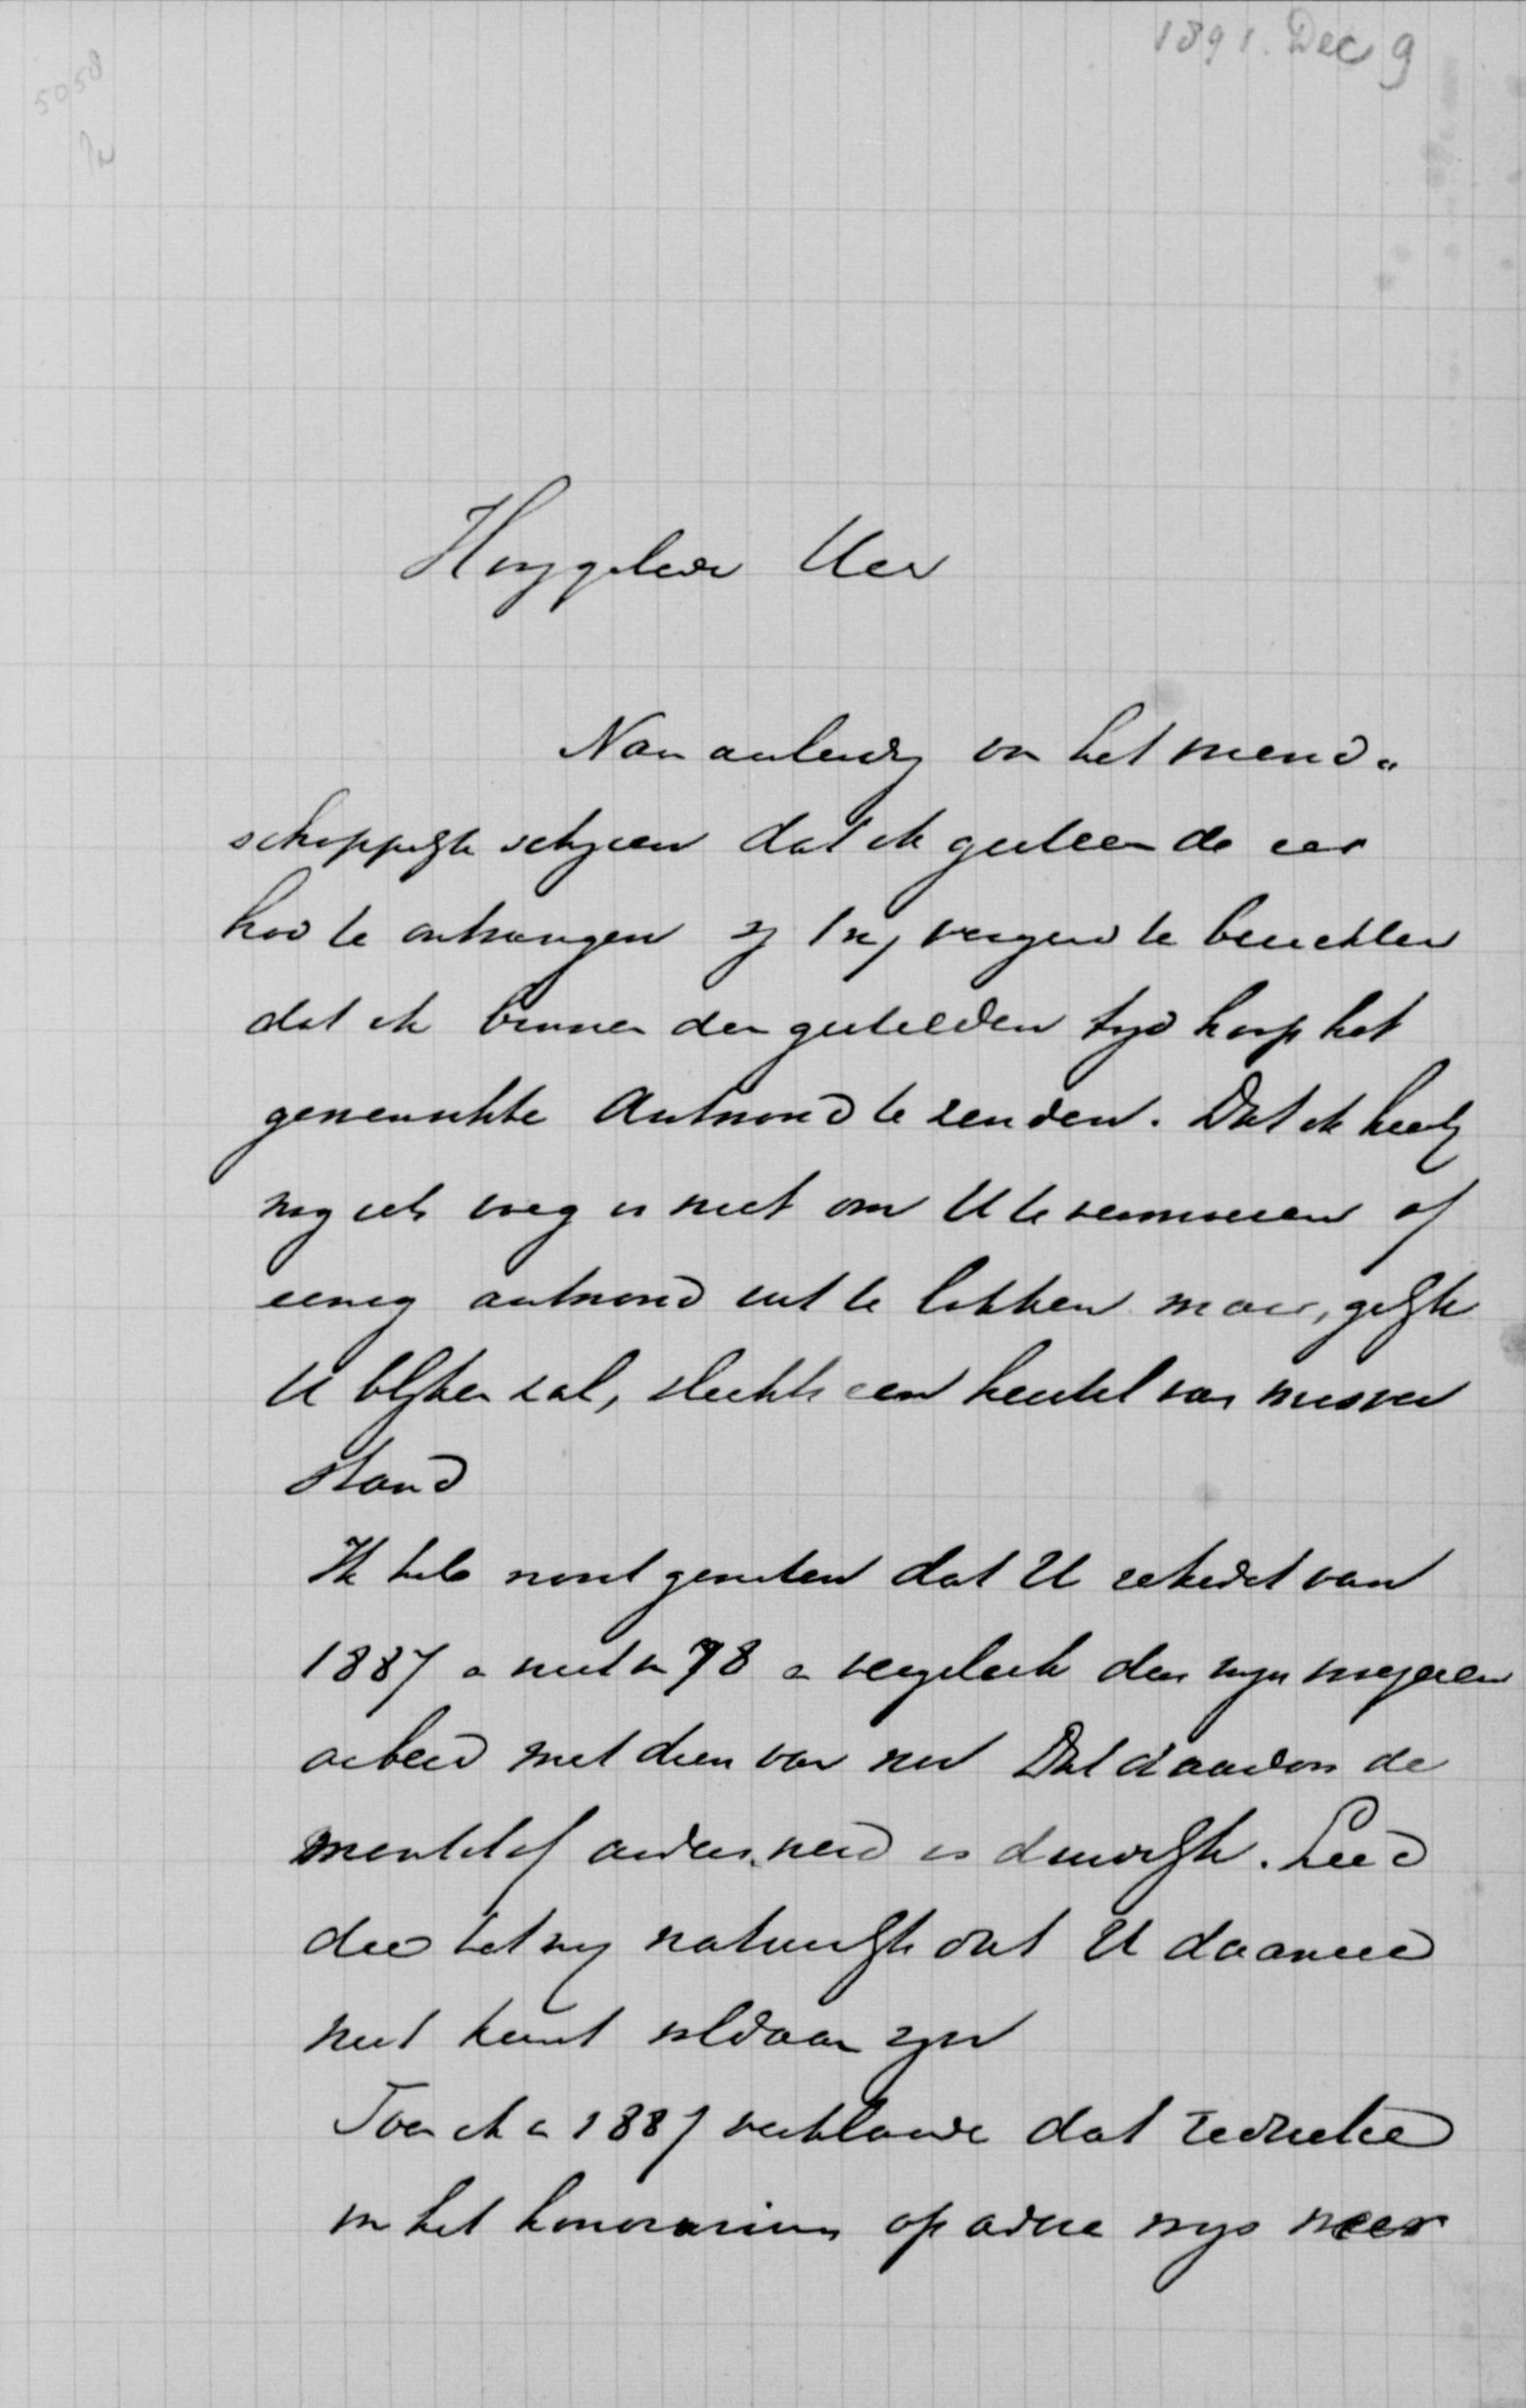 1891. Dec 9
5058
Hooggeleerde Heer
Naar aanleiding van het vriend-
schappelijk schrijven dat ik gisteren de eer
had te ontvangen zij mij vergund te berichten
dat ik binnen den gestelden tijd hoop het
gewenschte Antwoord te zenden. Dat ik hierbij
nog iets voeg is niet om U te vermoeien of
eenig antwoord uit te lokken maar, gelijk
U blijken zal, slechts een herstel van misver
stand
Ik heb nooit geweten dat U rekendet van
1887 en niet van 78 en vergeleek dus mijn vroegeren
arbeid met dien van nu Dat daardoor de
maatstaf anders werd is duidelijk. Leed
deed het mij natuurlijk dat U daarmee
niet kunt voldaan zijn
Toen ik in 1887 verklaarde dat reductie
van het honorarium op andere wijs meer